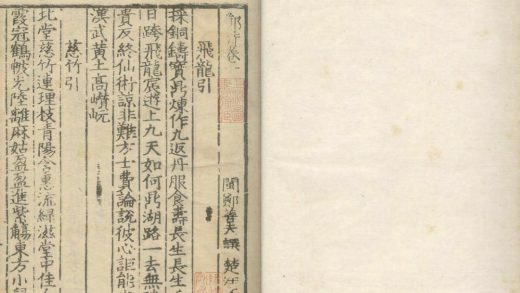 閩鄭善夫譔楚
飛龍引
採銅鑄寶鼎煉作九返丹服食壽長生長生
日跨飛龍宸遊上九天如何鼎湖路一去無
貴反終仙術諒非難方士費論說彼心詎能
漢武黃土高巑岏
慈竹引
北堂慈竹連理枝青陽含惠流綠滋堂中佳
霞冠鶴帔光陸離麻姑盈盈進紫觴東方小